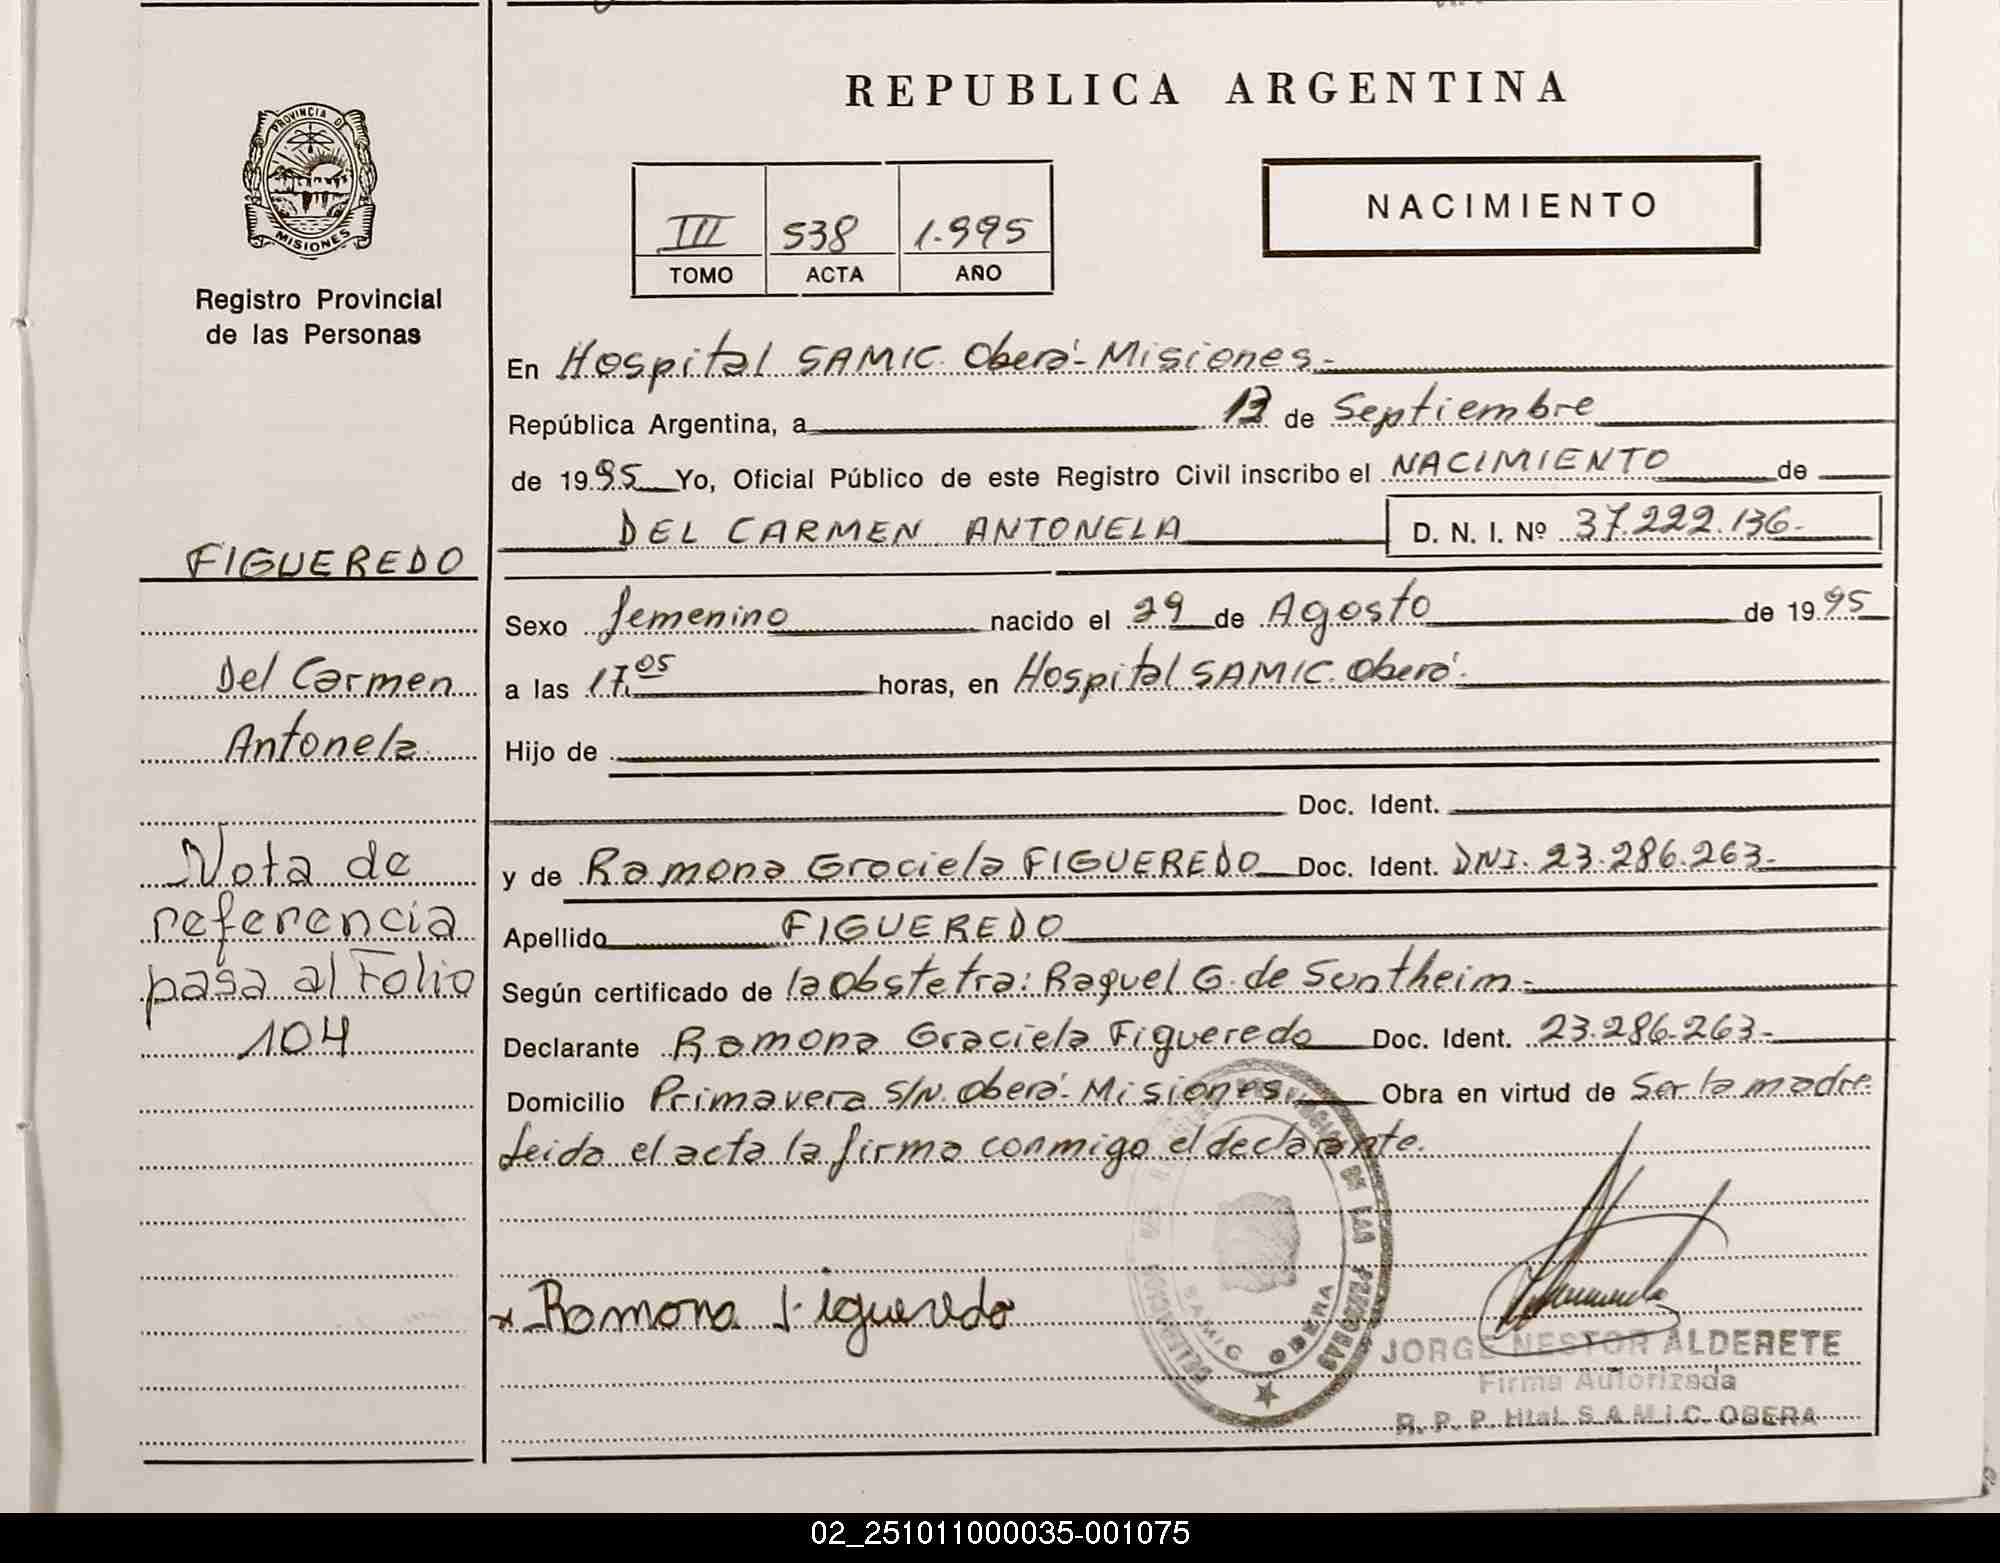 REPUBLICA ARGENTINA
PROVINCIA D
MISIONES
Registro Provincial
de las Personas
III 538 1.995
TOMO ACTA AÑO
NACIMIENTO
En Hospital SAMIC. Oberá-Misiones.-
República Argentina, a 13 de Septiembre
de 1995 Yo, Oficial Público de este Registro Civil inscribo el NACIMIENTO de
DEL CARMEN ANTONELA D. N. I. Nº 37.222.136-
FIGUEREDO
Sexo femenino nacido el 29 de Agosto de 1995
Del Carmen
a las 17.05 horas, en Hospital SAMIC. Oberá.
Antonela
Hijo de
Doc. Ident.
Nota de
referencia
pasa al Folio
104
y de Ramona Graciela FIGUEREDO Doc. Ident. DNI. 23.286.263-
Apellido FIGUEREDO
Según certificado de la Obstetra: Raquel G. de Sontheim.-
Declarante Ramona Graciela Figueredo Doc. Ident. 23.286.263-
Domicilio Primavera S/N. Oberá-Misiones Obra en virtud de Ser la madre.
Leida el acta la firma conmigo el declarante.
x Ramona Figueredo
DE LAS PERSONAS
SAMIC OBERA
JORGE NESTOR ALDERETE
Firma Autorizada
R. P. P. Htal. S.A.M.I.C. OBERA
02_251011000035-001075